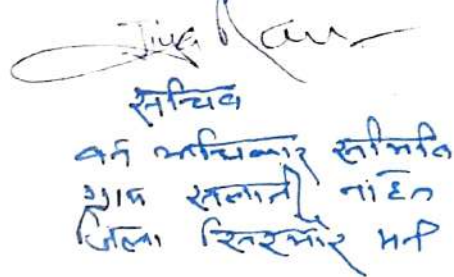 Jiya Ram
सचिव
वन अधिकार समिति
ग्राम सलानी नाहन
जिला सिरमौर